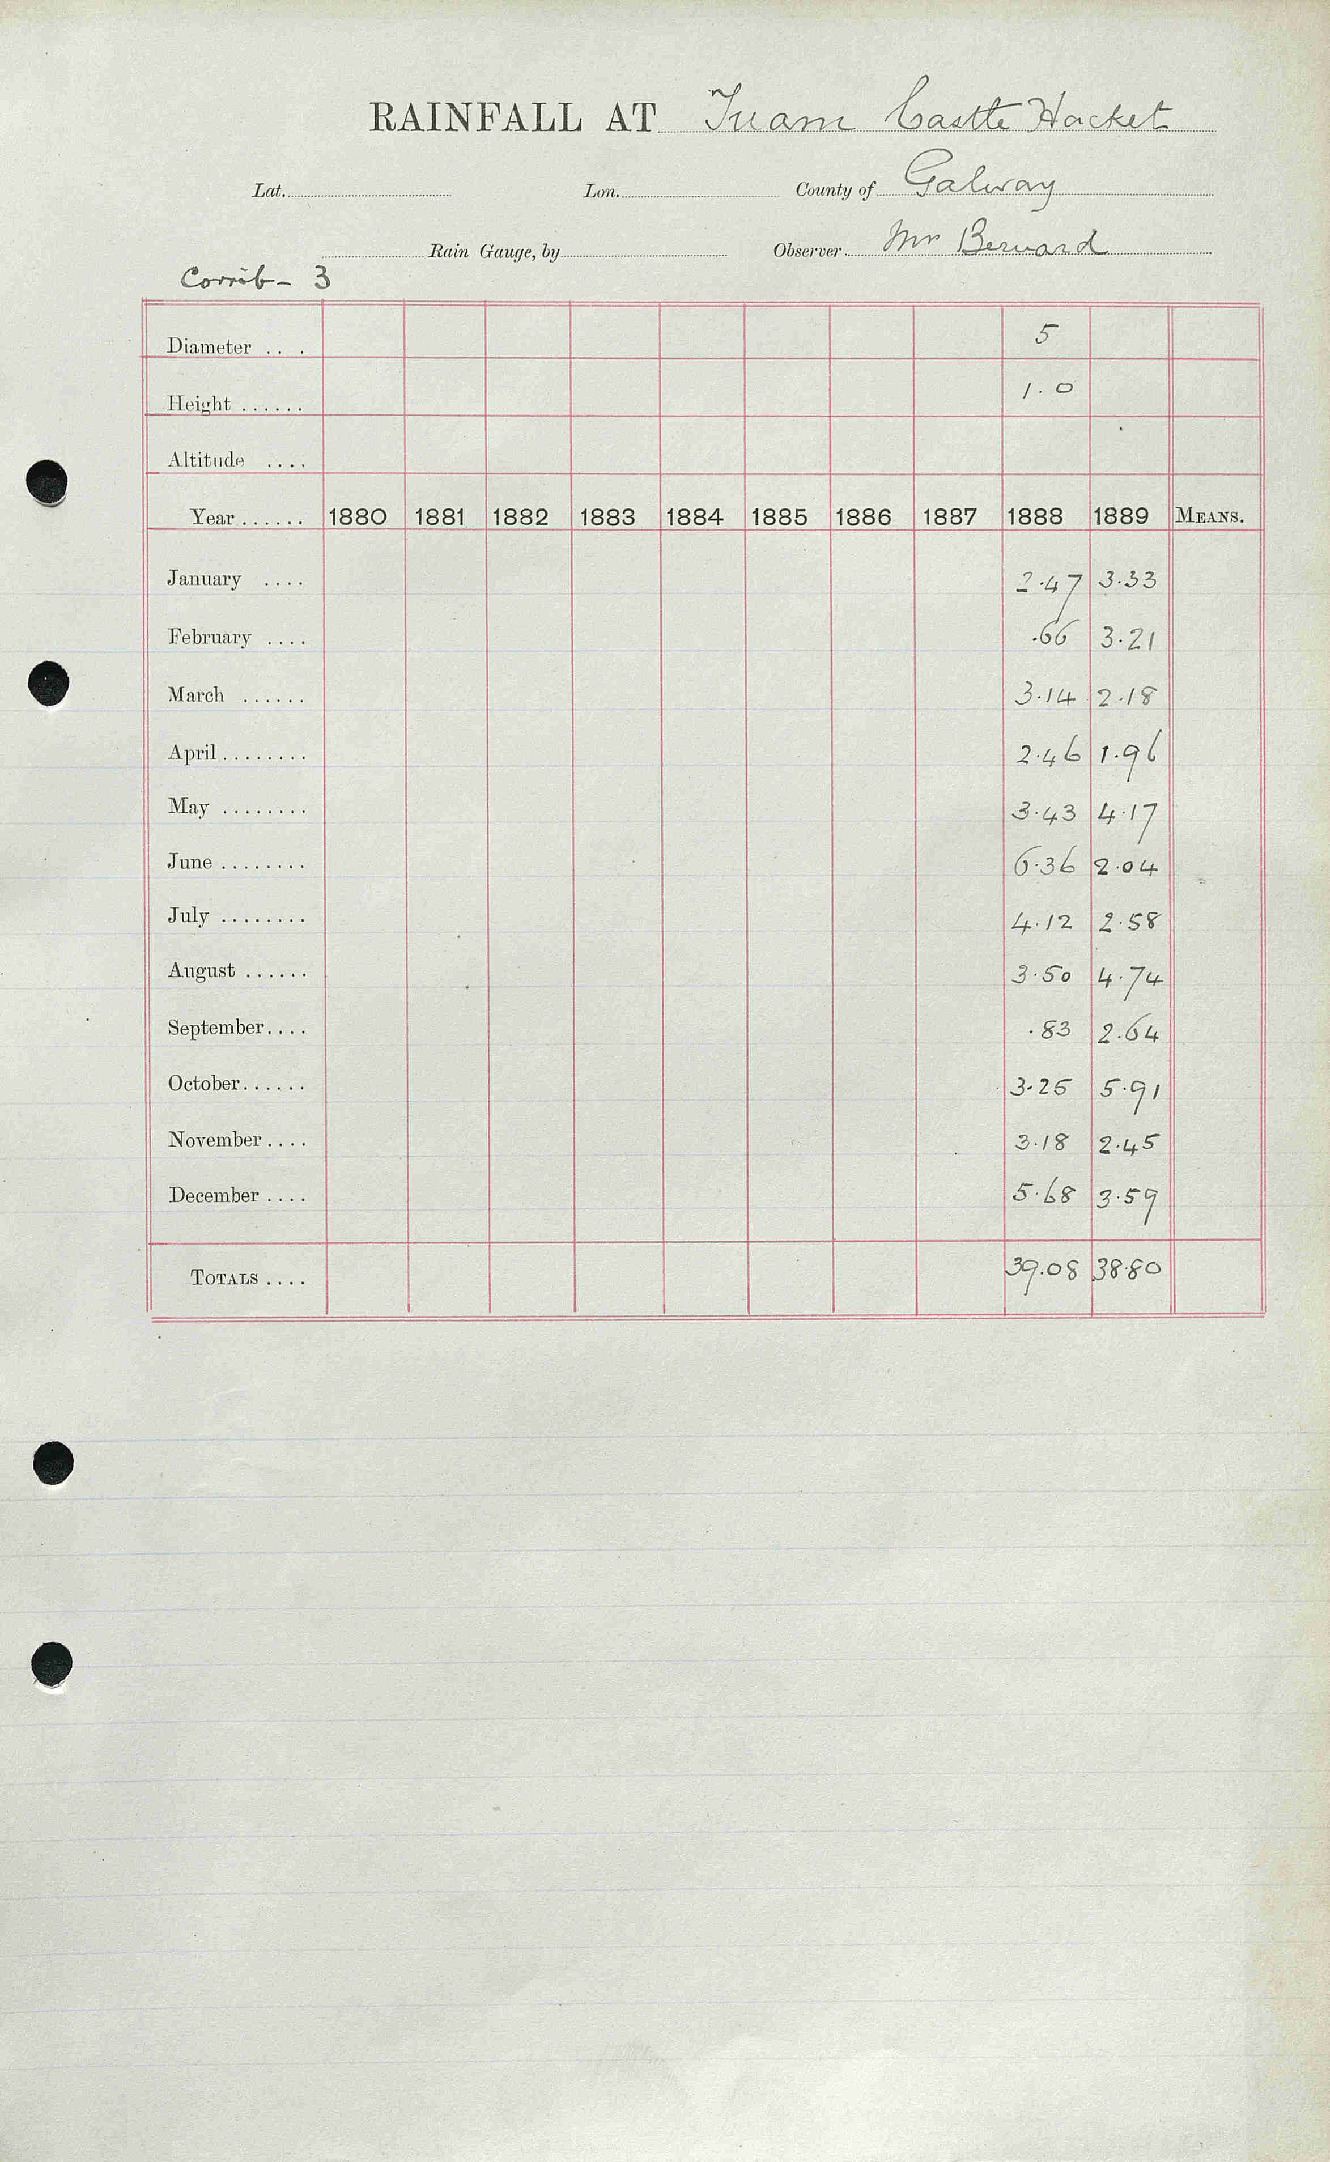 RAINFALL AT Tuam Castle Hacket
Lat. Lon. County of Galway
Rain Gauge, by Observer. Mr Bernard
Corrib - 3
Diameter . . . 5
Height ...... 1.0
Altitude ....
Year ...... 1880 1881 1882 1883 1884 1885 1886 1887 1888 1889 MEANS.
January .... 2.47 3.33
February .... .66 3.21
March ...... 3.14 2.18
April ........ 2.46 1.96
May ........ 3.43 4.17
June ........ 6.36 2.04
July ........ 4.12 2.58
August ...... 3.50 4.74
September.... .83 2.64
October...... 3.25 5.91
November .... 3.18 2.45
December .... 5.68 3.59
TOTALS .... 39.08 38.80